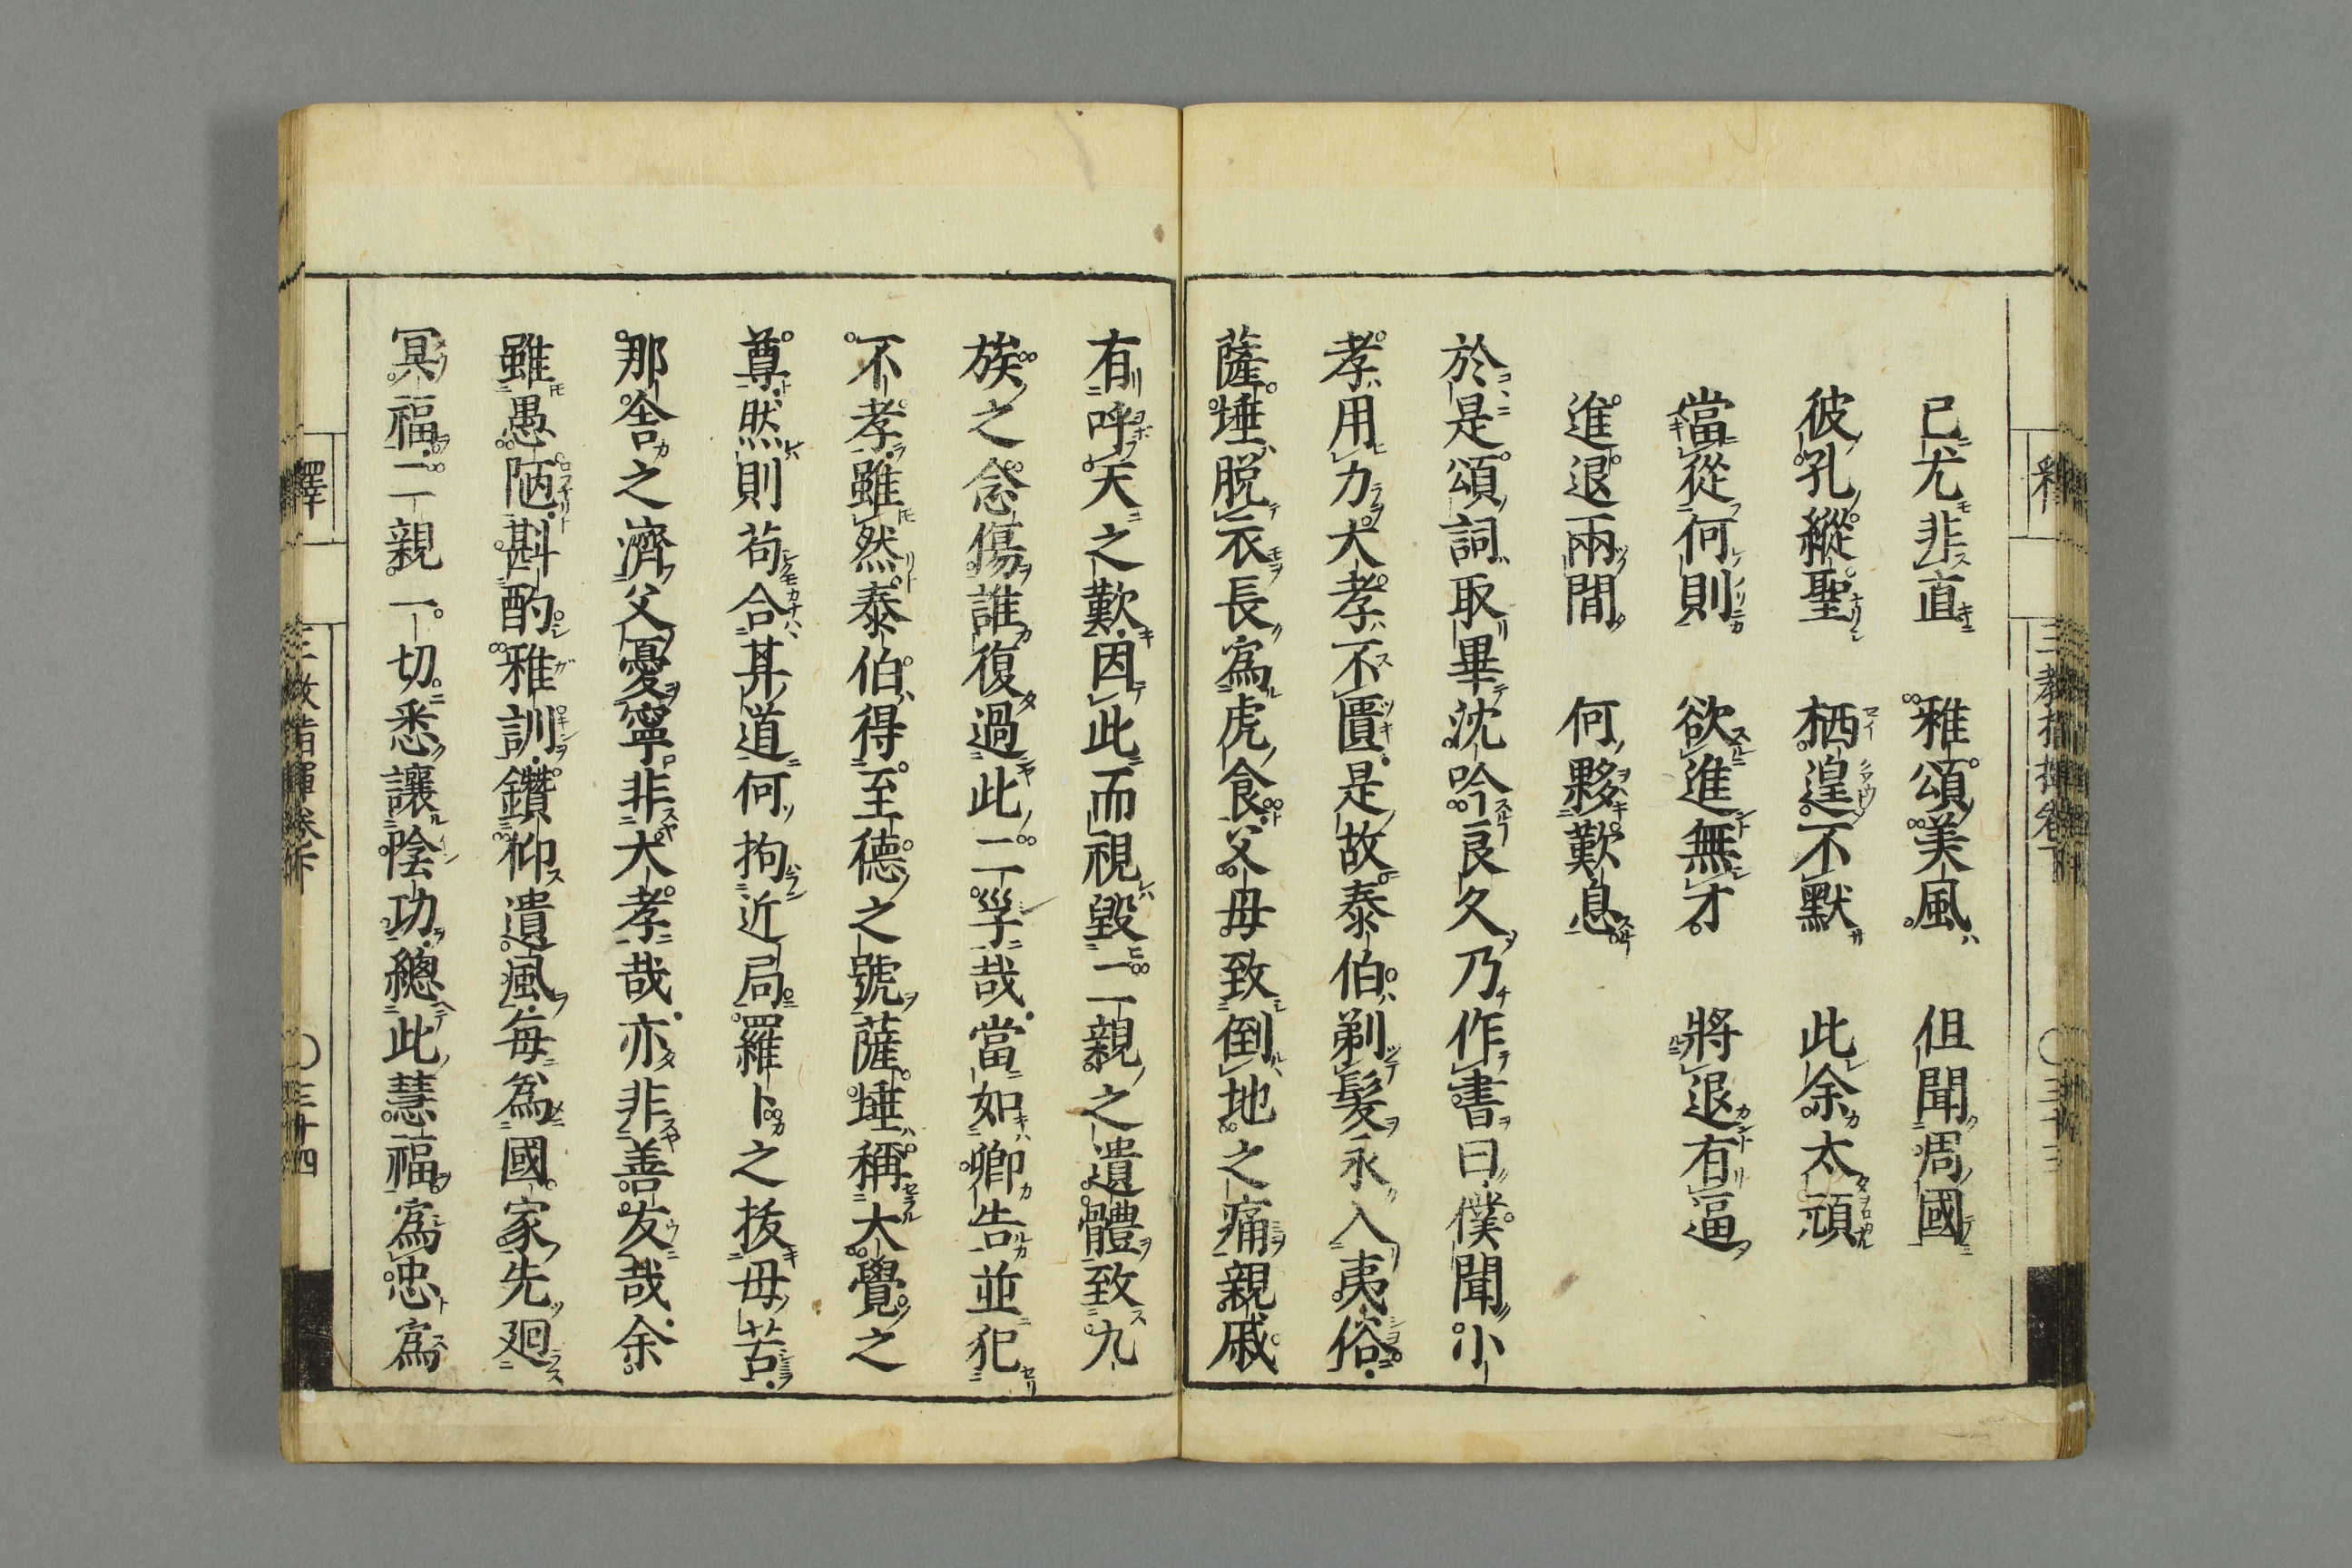 已尤非直　雅頌美風　但聞周國
彼孔縱聖　栖遑不默　此余太頑
當從何則　欲進無才　將退有逼
進退兩間　何夥歎息
於是頌詞取畢沈吟良久乃作書曰僕聞小
孝用力大孝不匱是故泰伯剃髮永入夷俗
薩埵脱衣長爲虎食父母致倒地之痛親戚
有呼天之歎因此而視毀二親之遺體致九
族之念傷誰復過此二孚哉當如卿告並犯
不孝雖然泰伯得至德之號薩埵稱大覺之
尊然則苟合其道何拘近局羅卜之拔母苦
那舍之濟父憂寧非大孝哉亦非善友哉余
雖愚陋斟酌雅訓鑽仰遺風每爲國家先廻
冥福二親一切悉讓陰功總此慧福爲忠爲
釋　三教指揮卷下　〇三十四